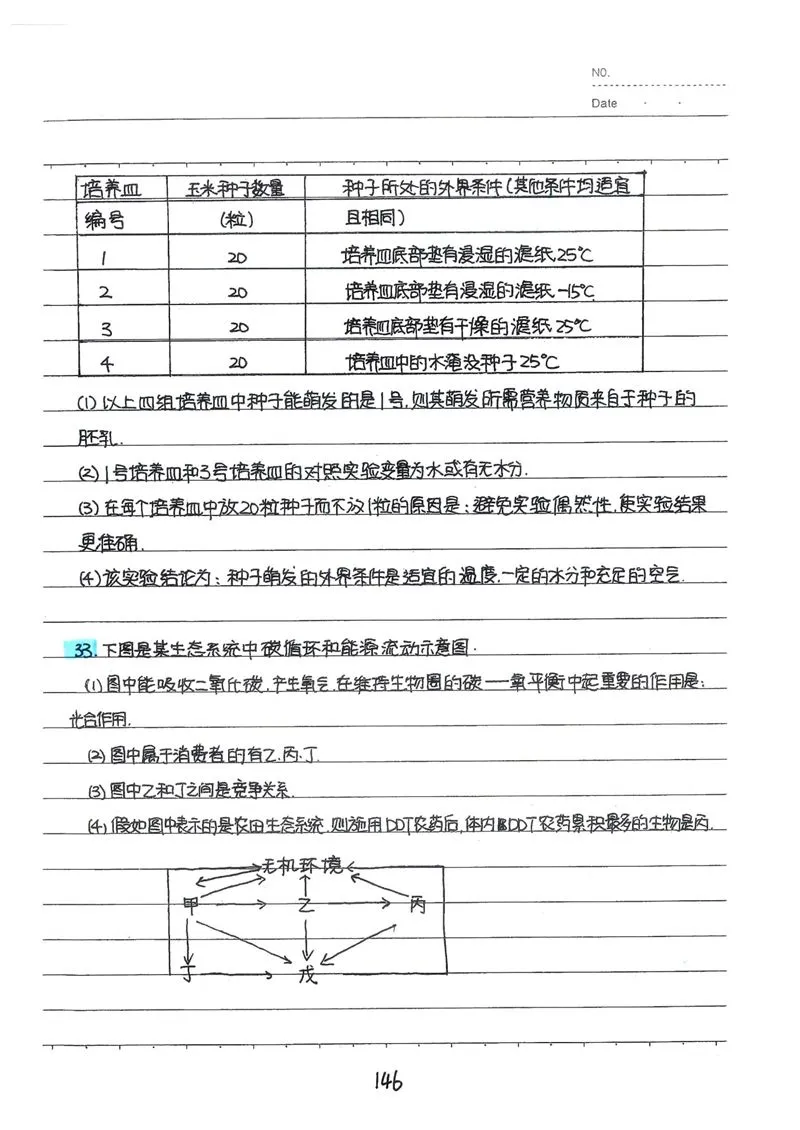 NO.
Date
培养皿 玉米种子数量 种子所处的外界条件(其他条件均适宜
编号 (粒) 且相同)
1 20 培养皿底部垫有浸湿的滤纸25℃
2 20 培养皿底部垫有浸湿的滤纸-15℃
3 20 培养皿底部垫有干燥的滤纸25℃
4 20 培养皿中的水淹没种子25℃
(1)以上四组培养皿中种子能萌发的是1号,则其萌发所需营养物质来自于种子的
胚乳.
(2)1号培养皿和3号培养皿的对照实验变量为水或有无水分.
(3)在每个培养皿中放20粒种子而不放1粒的原因是:避免实验偶然性,使实验结果
更准确.
(4)该实验结论为:种子萌发的外界条件是适宜的温度,一定的水分和充足的空气.
33.下图是某生态系统中碳循环和能源流动示意图.
(1)图中能吸收二氧化碳,产生氧气,在维持生物圈的碳一氧平衡中起重要的作用是:
光合作用.
(2)图中属于消费者的有乙.丙.丁
(3)图中乙和丁之间是竞争关系.
(4)假如图中表示的是农田生态系统.则施用DDT农药后,体内DDT农药累积最多的生物是丙.
无机环境
甲 乙 丙
丁 戊
146